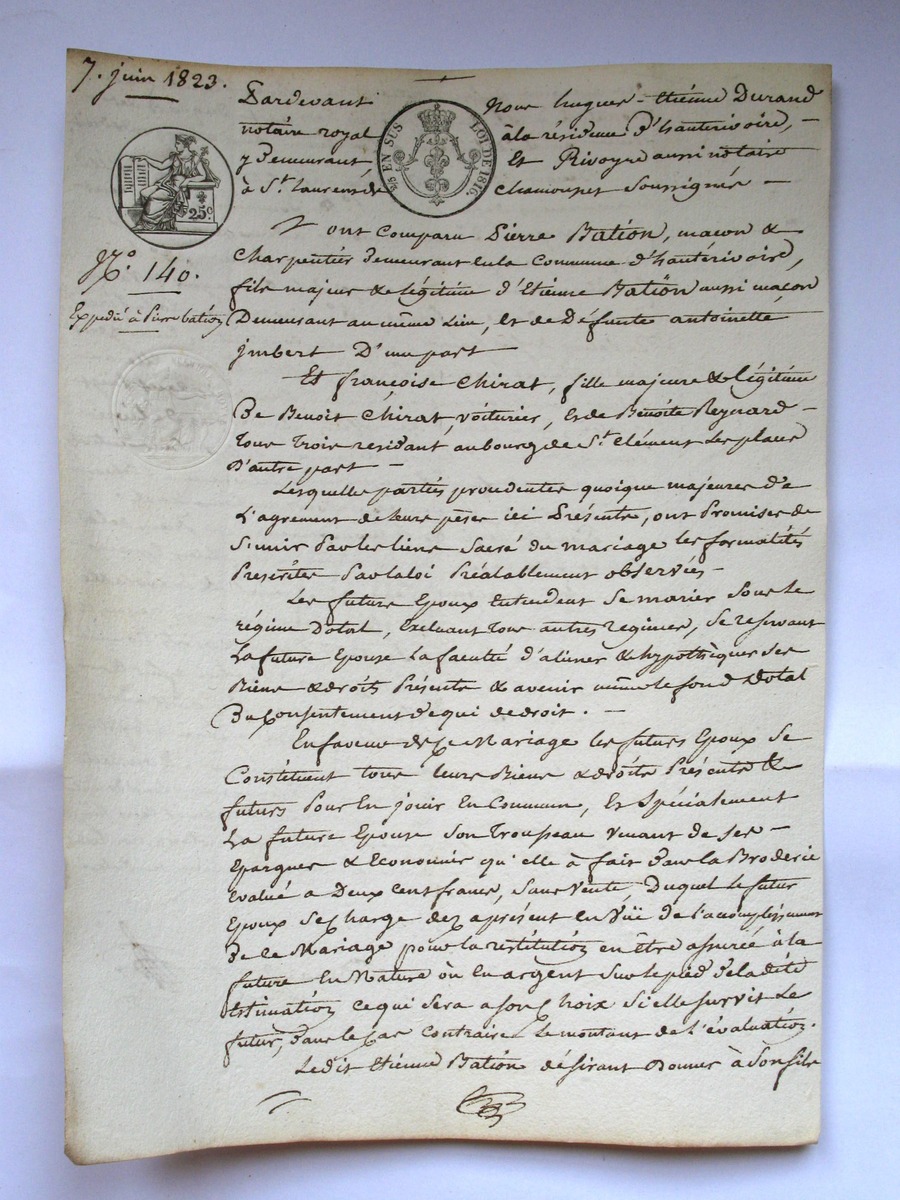 7. juin 1823.
Pardevant Nous hugues-etiénne Durand
notaire royal à la résidence d'hauterivoire,
y demeurant Et Rivoyre aussi notaire
à St. Laurent de Chamousset Soussignés
25 EN SUS LOI DE 1816.
25c.
No. 140.
Expedié à Pierre bation
ont comparu Pierre Bation, maçon &
Charpentier demeurant en la Commune d'hauterivoire,
fils majeur & légitime d'Etienne Bation aussi maçon
Demeurant au même Lieu, et de Défunte antoinette
jmbert D'une part
Et françoise Chirat, fille majeure & légitime
De Benoit Chirat, voiturier, et de Benoite Reynard
tous trois residant au bourg de St. Clément Les places
D'autre part
Lesquelle parties procedentes quoique majeures de
L'agrement de leurs pères ici Présents, ont Promises de
S'unir Par les liens Sacré du mariage les formalités
Prescrites Par la loi Préalablement observées
Les future Epoux Entendent Se marier Sous le
régime Dotal, Excluant tous autres regimes, Se reservant
La future Epouse La faculté d'aliéner & hypothèquer Ses
Biens & droits Présents & avenir même le fond Dotal
Du Consentement de qui de droit.
En faveur de Ce Mariage les futurs Epoux Se
Constituent tous leurs Biens & droits Présents &
futurs Pour En jouir En Commun, Et Spécialement
La future Epouse Son Trousseau venant de Ses
Epargnes & Economies qu'elle à fait dans la Broderie
évalué a Deux Cent francs, Sans vente, Duquel le futur
Epoux Se Charge dez apresent en Vüe de l'accomplissement
De Ce Mariage pour la restitution en être assurée à la
future En Nature où En argent Sur le pied de ladite
Estimation ce qui Sera a Son Choix Si elle survit Le
futur, dans le Cas Contraire Le montant de l'évaluation.
Ledit Etiénne Bation désirant Donner à Son fils